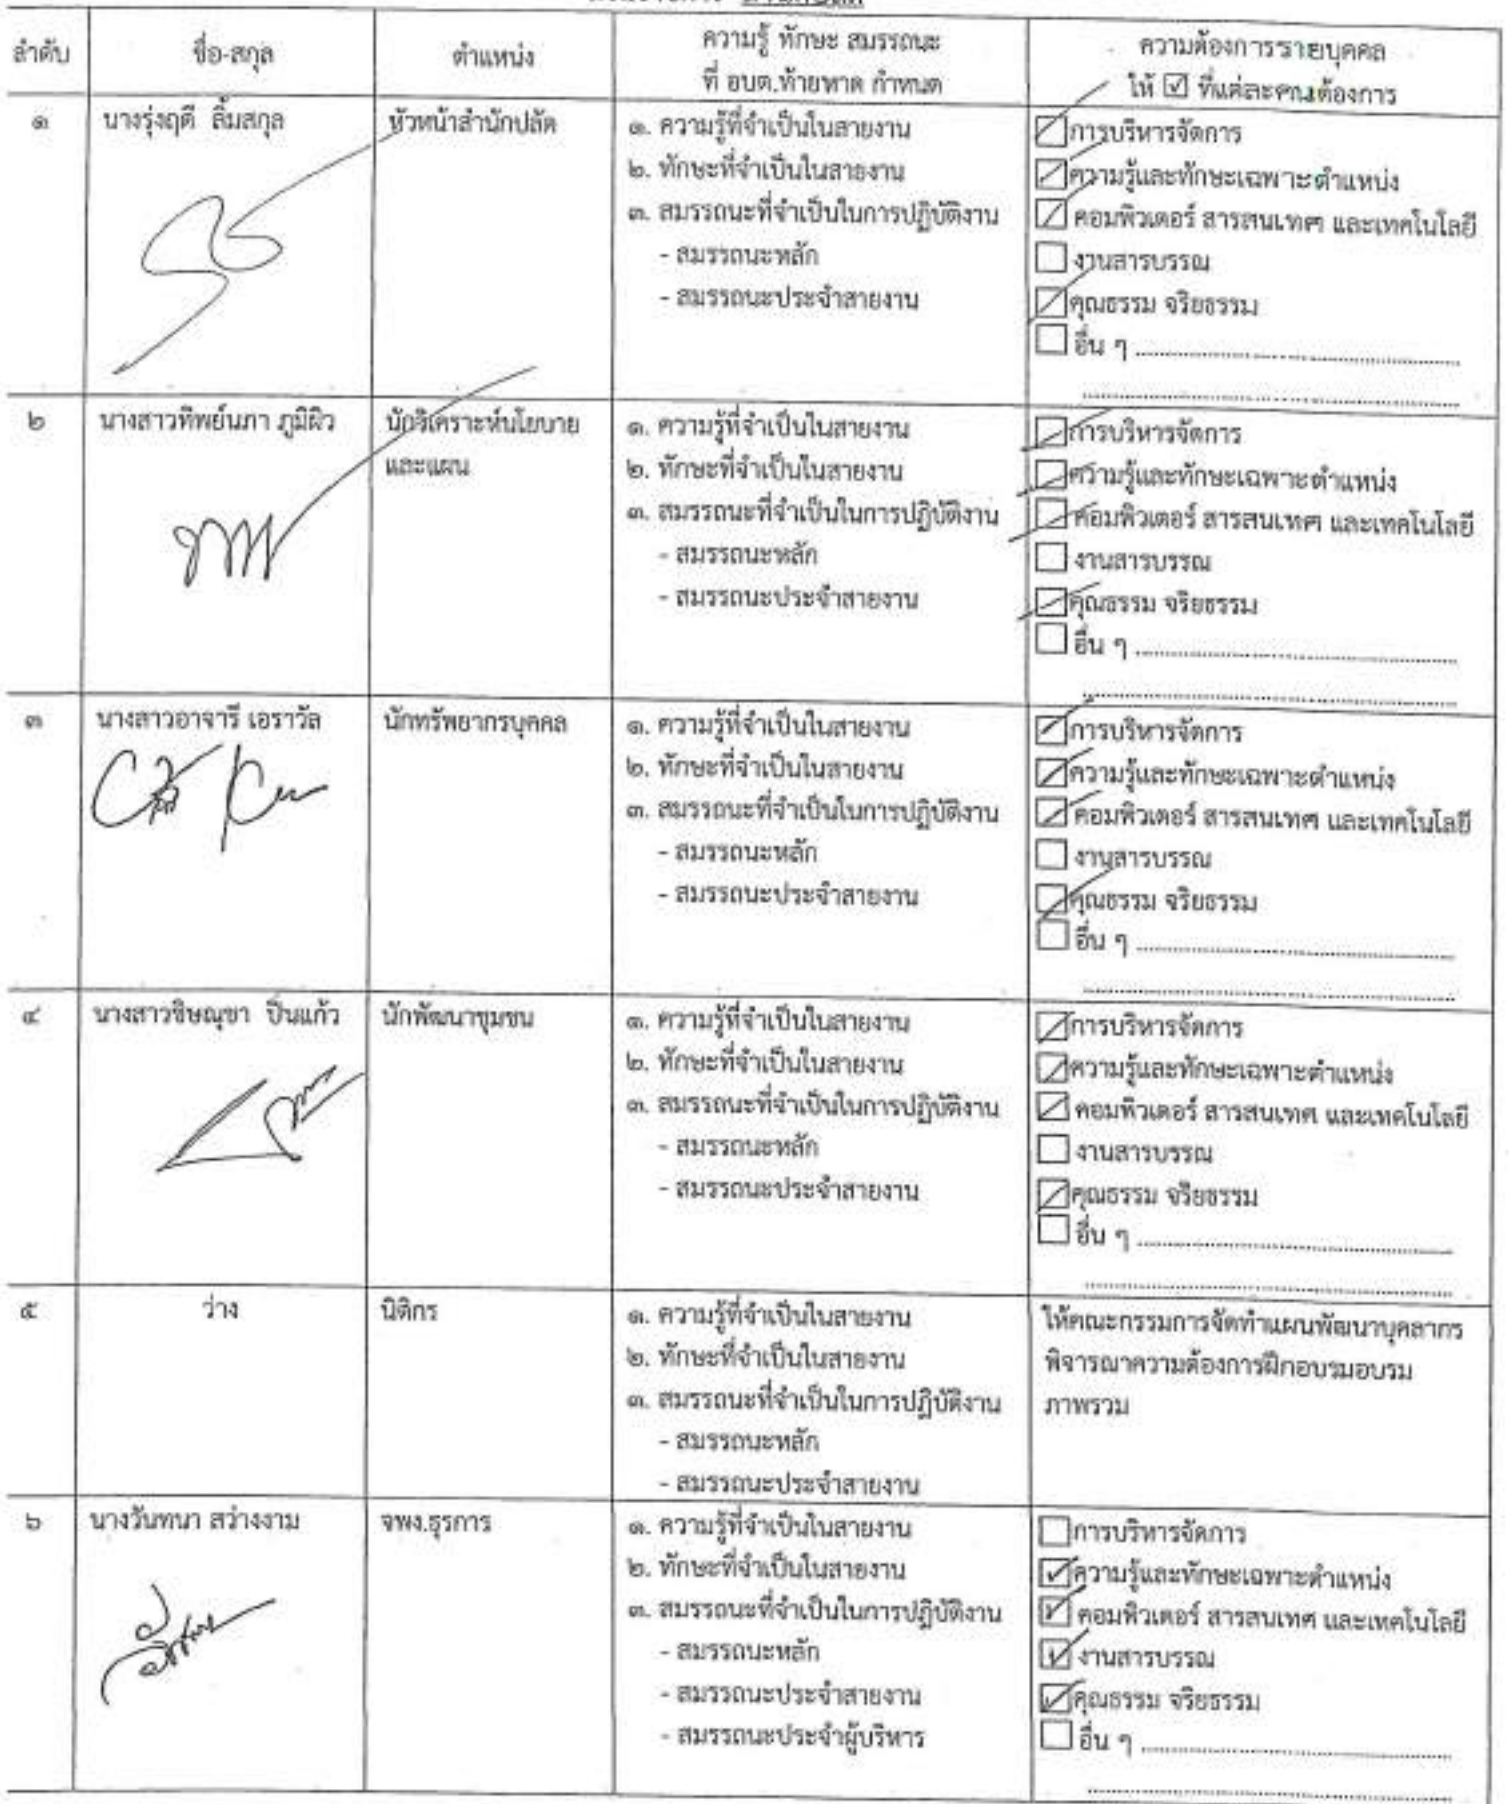 ลำดับ
ชื่อ-สกุล
ตำแหน่ง
ความรู้ ทักษะ สมรรถนะ
ที่ อบต.ท้ายหาด กำหนด
ความต้องการรายบุคคล
ให้ ☑ ที่แต่ละคนต้องการ
๑
นางรุ่งฤดี ลิ้มสกุล
หัวหน้าสำนักปลัด
๑. ความรู้ที่จำเป็นในสายงาน
๒. ทักษะที่จำเป็นในสายงาน
๓. สมรรถนะที่จำเป็นในการปฏิบัติงาน
- สมรรถนะหลัก
- สมรรถนะประจำสายงาน
☑ การบริหารจัดการ
☑ ความรู้และทักษะเฉพาะตำแหน่ง
☑ คอมพิวเตอร์ สารสนเทศ และเทคโนโลยี
☐ งานสารบรรณ
☑ คุณธรรม จริยธรรม
☐ อื่น ๆ
๒
นางสาวทิพย์นภา ภูมิผิว
นักวิเคราะห์นโยบาย
และแผน
๑. ความรู้ที่จำเป็นในสายงาน
๒. ทักษะที่จำเป็นในสายงาน
๓. สมรรถนะที่จำเป็นในการปฏิบัติงาน
- สมรรถนะหลัก
- สมรรถนะประจำสายงาน
☑ การบริหารจัดการ
☑ ความรู้และทักษะเฉพาะตำแหน่ง
☑ คอมพิวเตอร์ สารสนเทศ และเทคโนโลยี
☐ งานสารบรรณ
☑ คุณธรรม จริยธรรม
☐ อื่น ๆ
๓
นางสาวอาจารี เอราวัล
นักทรัพยากรบุคคล
๑. ความรู้ที่จำเป็นในสายงาน
๒. ทักษะที่จำเป็นในสายงาน
๓. สมรรถนะที่จำเป็นในการปฏิบัติงาน
- สมรรถนะหลัก
- สมรรถนะประจำสายงาน
☑ การบริหารจัดการ
☑ ความรู้และทักษะเฉพาะตำแหน่ง
☑ คอมพิวเตอร์ สารสนเทศ และเทคโนโลยี
☐ งานสารบรรณ
☑ คุณธรรม จริยธรรม
☐ อื่น ๆ
๔
นางสาวชิษณุชา ปิ่นแก้ว
นักพัฒนาชุมชน
๑. ความรู้ที่จำเป็นในสายงาน
๒. ทักษะที่จำเป็นในสายงาน
๓. สมรรถนะที่จำเป็นในการปฏิบัติงาน
- สมรรถนะหลัก
- สมรรถนะประจำสายงาน
☑ การบริหารจัดการ
☑ ความรู้และทักษะเฉพาะตำแหน่ง
☑ คอมพิวเตอร์ สารสนเทศ และเทคโนโลยี
☐ งานสารบรรณ
☑ คุณธรรม จริยธรรม
☐ อื่น ๆ
๕
ว่าง
นิติกร
๑. ความรู้ที่จำเป็นในสายงาน
๒. ทักษะที่จำเป็นในสายงาน
๓. สมรรถนะที่จำเป็นในการปฏิบัติงาน
- สมรรถนะหลัก
- สมรรถนะประจำสายงาน
ให้คณะกรรมการจัดทำแผนพัฒนาบุคลากร
พิจารณาความต้องการฝึกอบรมอบรม
ภาพรวม
๖
นางวันทนา สว่างงาม
จพง.ธุรการ
๑. ความรู้ที่จำเป็นในสายงาน
๒. ทักษะที่จำเป็นในสายงาน
๓. สมรรถนะที่จำเป็นในการปฏิบัติงาน
- สมรรถนะหลัก
- สมรรถนะประจำสายงาน
- สมรรถนะประจำผู้บริหาร
☐ การบริหารจัดการ
☑ ความรู้และทักษะเฉพาะตำแหน่ง
☑ คอมพิวเตอร์ สารสนเทศ และเทคโนโลยี
☑ งานสารบรรณ
☑ คุณธรรม จริยธรรม
☐ อื่น ๆ